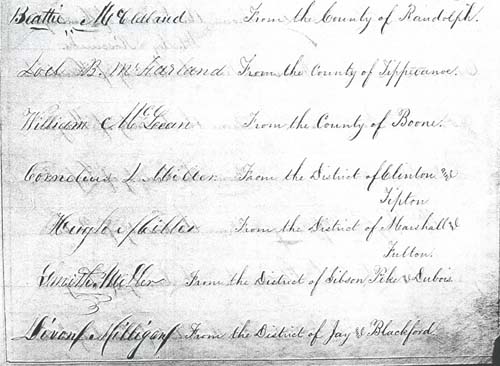 Beattie McClelland From the County of Randolph.
Zod B. McFarland From the County of Tippecanoe.
William McLean From the County of Boone.
Cornelius L. Miller From the District of Clinton &
Tipton
Hugh Miller From the District of Marshall &
Fulton.
Smith Miller From the District of Gibson Pike & Dubois
Dixon Milligan From the District of Jay & Blackford